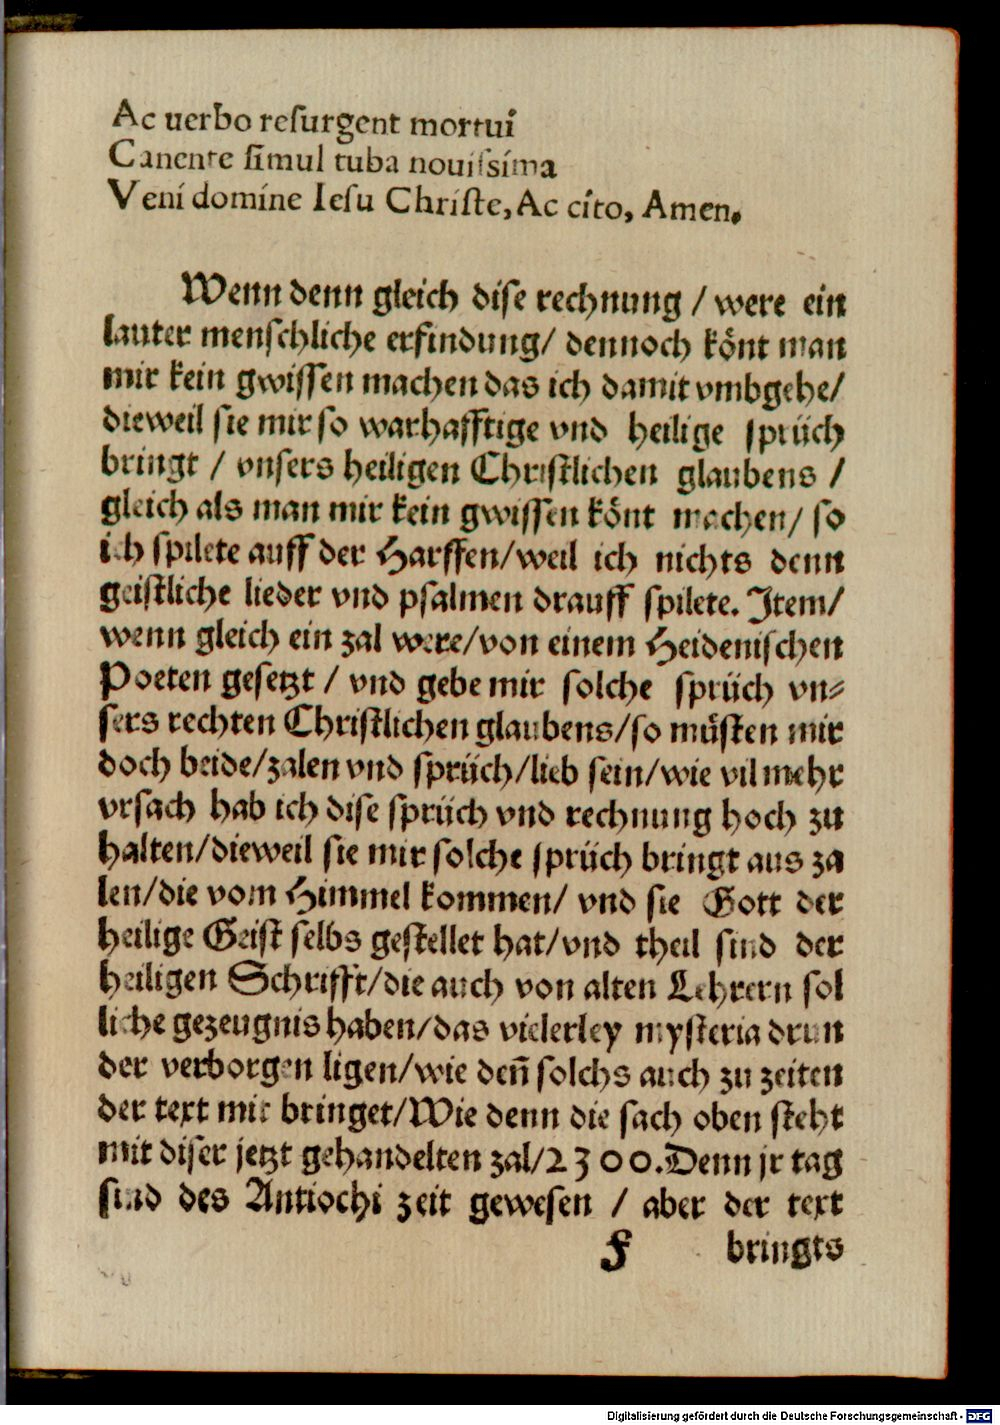 Ac uerbo resurgent mortui
Canente simul tuba nouissima
Veni domine Iesu Christe, Ac cito, Amen.
Wenn denn gleich dise rechnung / were ein
lauter menschliche erfindung/ dennoch könt man
mir kein gwissen machen das ich damit vmbgehe/
dieweil sie mir so warhafftige vnd heilige sprüch
bringt / vnsers heiligen Christlichen glaubens /
gleich als man mir kein gwissen könt machen/ so
ich spilete auff der Harffen/weil ich nichts denn
geistliche lieder vnd psalmen drauff spilete. Item/
wenn gleich ein zal were/von einem Heidenischen
Poeten gesetzt / vnd gebe mir solche sprüch vn⸗
sers rechten Christlichen glaubens/so müsten mir
doch beide/zalen vnd sprüch/lieb sein/wie vil mehr
vrsach hab ich dise sprüch vnd rechnung hoch zu
halten/dieweil sie mir solche sprüch bringt aus za
len/die vom Himmel kommen/ vnd sie Gott der
heilige Geist selbs gestellet hat/vnd theil sind der
heiligen Schrifft/die auch von alten Lehrern sol
liche gezeugnis haben/das vielerley mysteria drun
der verborgen ligen/wie deñ solchs auch zu zeiten
der text mit bringet/Wie denn die sach oben steht
mit diser jetzt gehandelten zal/2300.Denn jr tag
sind des Antiochi zeit gewesen / aber der text
F bringts
Digitalisierung gefördert durch die Deutsche Forschungsgemeinschaft - DFG